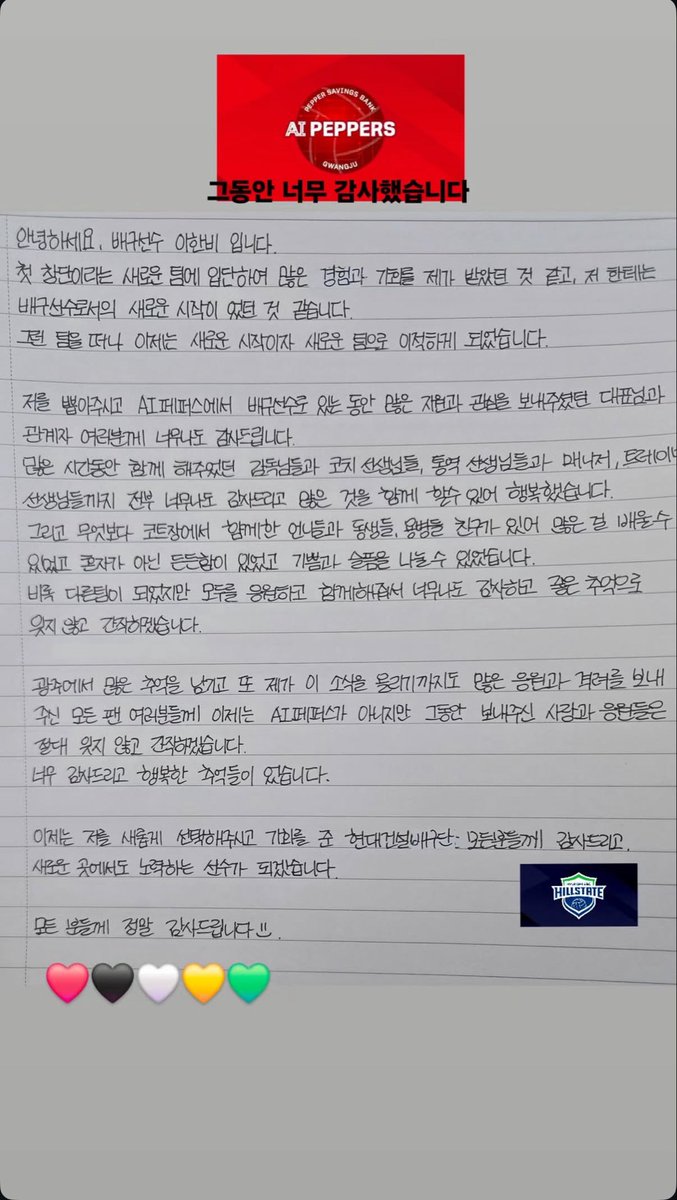 PEPPER SAVINGS BANK
AI PEPPERS
GWANGJU
그동안 너무 감사했습니다
안녕하세요, 배구선수 이한비 입니다.
첫 창단이라는 새로운 팀에 입단하여 많은 경험과 기회를 제가 받았던 것 같고, 저 한테는
배구선수로서의 새로운 시작이 었던 것 같습니다.
그런 팀을 떠나 이제는 새로운 시작이자 새로운 팀으로 이적하게 되었습니다.
저를 뽑아주시고 AI페퍼스에서 배구선수로 있는 동안 많은 지원과 관심을 보내주셨던 대표님과
관계자 여러분께 너무나도 감사드립니다.
많은 시간동안 함께 해주었던 감독님들과 코치 선생님들, 통역 선생님들과 매니저, 트레이너
선생님들까지 전부 너무나도 감사드리고 많은 것을 함께 할수 있어 행복했습니다.
그리고 무엇보다 코트장에서 함께한 언니들과 동생들, 용병들 친구가 있어 많은 걸 배울수
있었고 혼자가 아닌 든든함이 있었고 기쁨과 슬픔을 나눌 수 있었습니다.
비록 다른팀이 되었지만 모두를 응원하고 함께해줘서 너무나도 감사하고 좋은 추억으로
잊지 않고 간직하겠습니다.
광주에서 많은 추억을 남기고 또 제가 이 소식을 올리기까지도 많은 응원과 격려를 보내
주신 모든 팬 여러분들께 이제는 AI페퍼스가 아니지만 그동안 보내주신 사랑과 응원들은
절대 잊지 않고 간직하겠습니다.
너무 감사드리고 행복한 추억들이 있습니다.
이제는 저를 새롭게 선택해주시고 기회를 준 현대건설배구단: 모든분들께 감사드리고,
새로운 곳에서도 노력하는 선수가 되겠습니다.
HILLSTATE
모든 분들께 정말 감사드립니다.